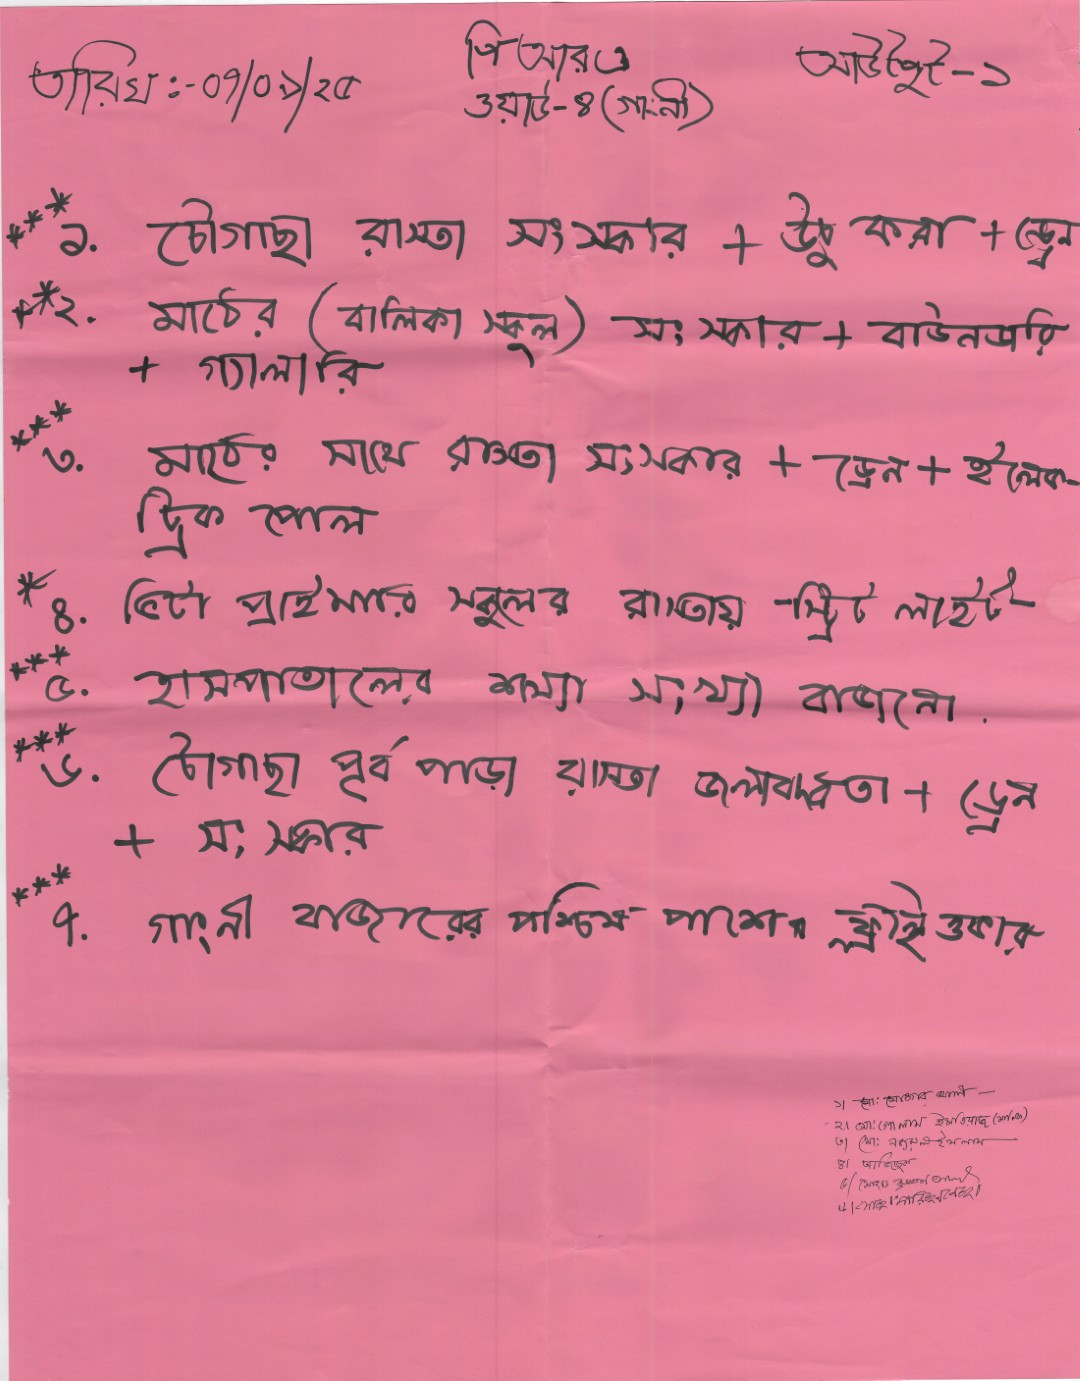 তারিখ :- ০৭/০৯/২৫
পি আর ও
ওয়ার্ড-৪ (গাংনী)
আউটপুট-১
*** ১. চৌগাছা রাস্তা সংস্কার + উঁচু করা + ড্রেন
** ২. মাঠের (বালিকা স্কুল) সংস্কার + বাউনডারি
+ গ্যালারি
*** ৩. মাঠের সাথে রাস্তা সংস্কার + ড্রেন + ইলেক-
ট্রিক পোল
* ৪. ভিটা প্রাইমারি স্কুলের রাস্তায় স্ট্রিট লাইট
*** ৫. হাসপাতালের শয্যা সংখ্যা বাড়ানো.
*** ৬. চৌগাছা পূর্ব পাড়া রাস্তা জলাবদ্ধতা + ড্রেন
+ সংস্কার
*** ৭. গাংনী বাজারের পশ্চিম পাশের ফ্লাইওভার
১। মো:
২। মো: গোলাম
৩। মো: ইসলাম
৪।
৫।
৬।